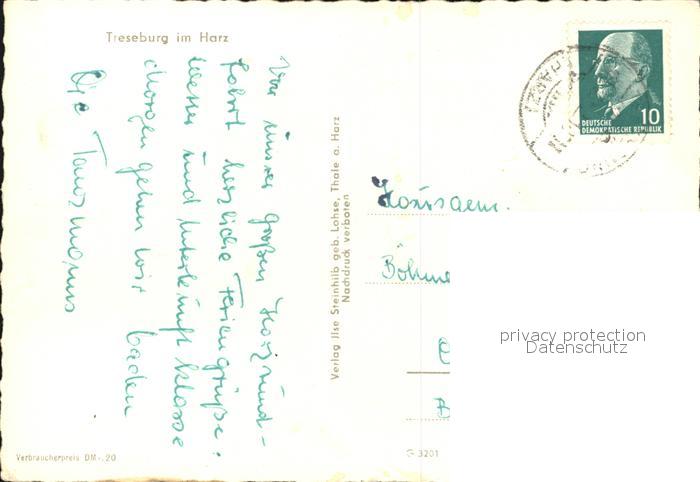 Treseburg im Harz
Von unserer großen Harzrund-
fahrt herzliche Feriengrüße.
Wetter und Unterkunft klasse
Morgen gehen wir baden
Die Tausmanns
Verlag Ilse Steinhilb geb. Lohse, Thale a. Harz
Nachdruck verboten
10
DEUTSCHE
DEMOKRATISCHE REPUBLIK
Böhme
privacy protection
Datenschutz
Verbraucherpreis DM -.20
G 3201